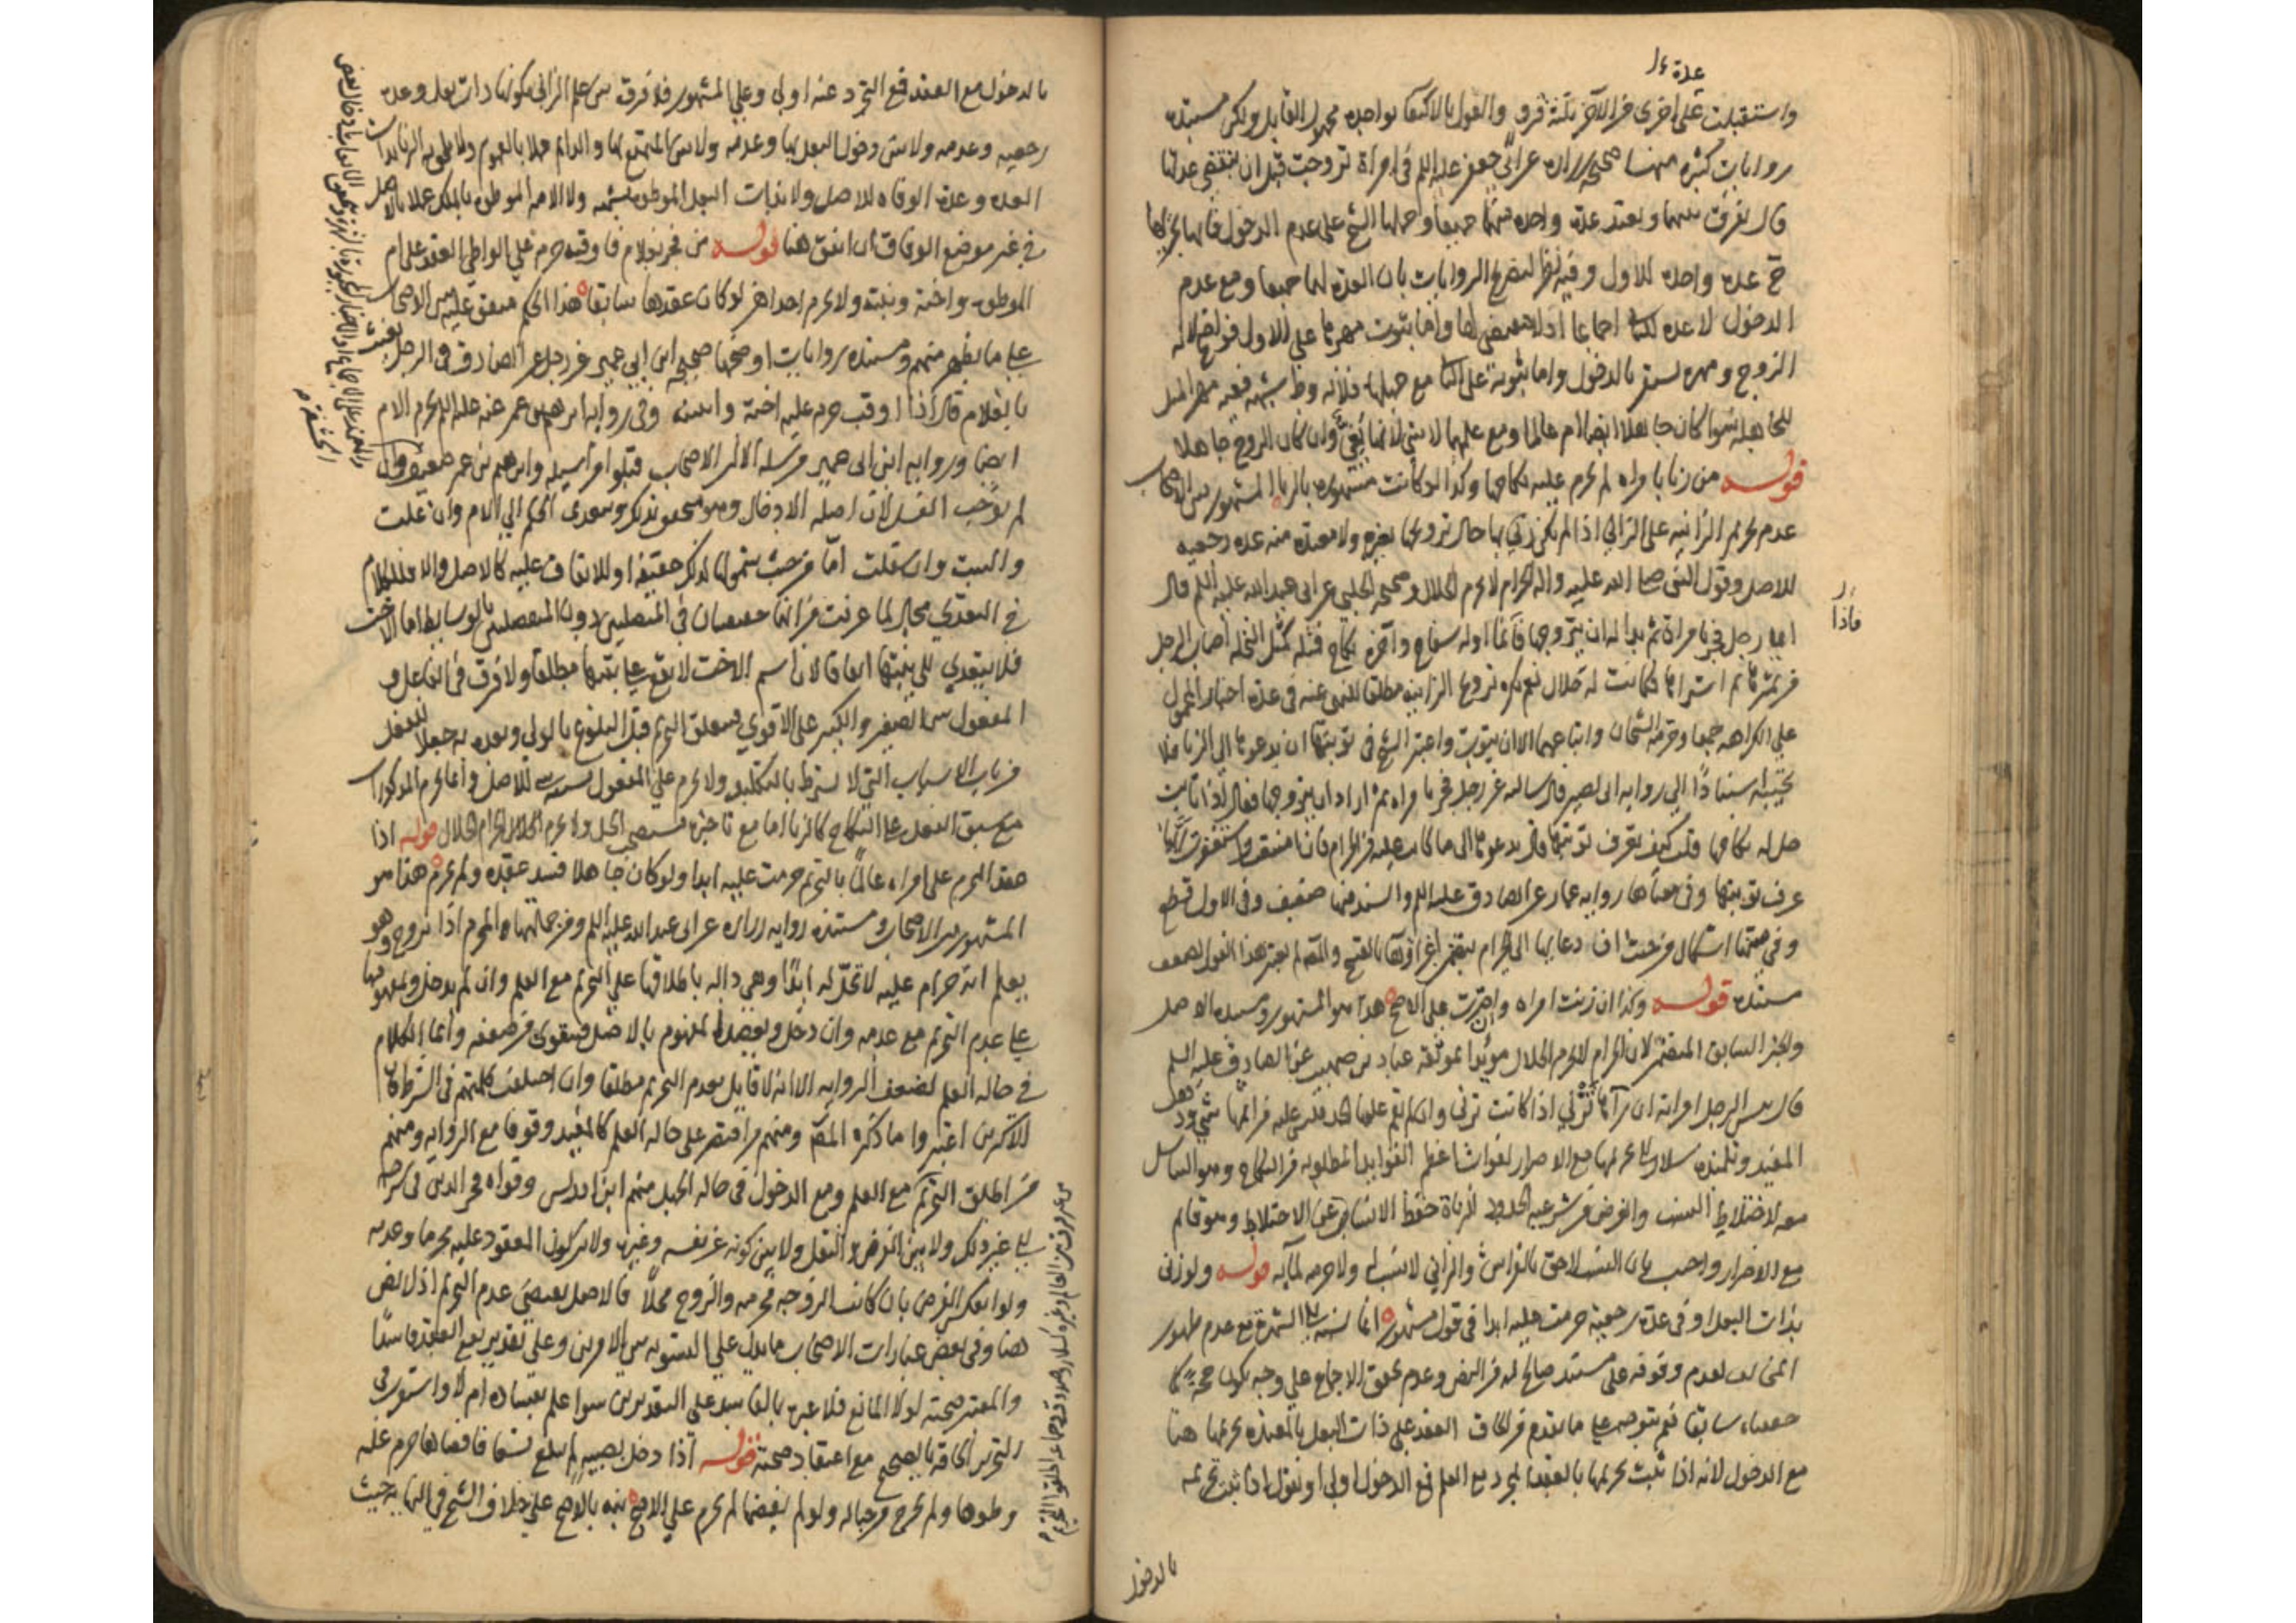 عدة
واستقبلت عدة اخرى من الآخر ثلثة قروء والقول بالاكتفاء بواحدة مجهول القايل ولكن مستنده
روايات كثيرة منها صحيحة زرارة عن ابي جعفر عليه السلم في امراة تزوجت قبل ان تنقضي عدتها
قال يفرق بينهما وتعتد عدة واحدة منهما جميعا وحملها الشيخ على عدم الدخول فانها يجزيها
ح عدة واحدة للاول وفيه نظر لتصريح الروايات بان العدة لهما جميعا ومع عدم
الدخول لا عدة اجماعا اذ لا مقتضى لها واما ثبوت مهرها على الاول فواضح لانه
الزوج ومهره يستقر بالدخول واما ثبوته على مع جهلها فلانه وطئ شبهة ففيه مهر المثل
للجاهلة سوا كان جاهلا ايضا ام عالما ومع علمها لا شئ لانها بغي وان كان الزوج جاهلا
قوله من زنا بامراة لم يحرم عليه نكاحها وكذا لو كانت مشهورة بالزنا المشهور بين الاصحاب
عدم تحريم الزانية على الزاني اذا لم يكن زنى بها حال تزويجها بغيره ولا معتدة منه عدة رجعية
للاصل وقول النبي صلى الله عليه واله الحرام لا يحرم الحلال وصحيحة الحلبي عن ابي عبد الله عليه السلم قال
فاذا
ايما رجل فجر بامراة ثم بدا له ان يتزوجها فانما اوله سفاح وآخره نكاح فمثله كمثل النخلة اصاب الرجل
من ثمرها ثم اشتراها فكانت له حلال نعم يكره تزويج الزانية مطلقا للنهي عنه في عدة اخبار المحمول
على الكراهة جمعا وحرمه الشيخان واتباعهما الا ان يتوب واعتبر الشيخ في توبتها ان يدعوها الى الزنا فلا
تجيبه استنادا الى رواية ابي بصير قال سالته عن رجل فجر بامراة ثم اراد ان يتزوجها فقال اذا تابت
حل له نكاحها قلت كيف يعرف توبتها قال يدعوها الى ما كانت عليه من الحرام فان امتنعت واستغفرت ربها
عرف توبتها وفي معناها رواية عمار عن الصادق عليه السلم والسند فيهما ضعيف وفي الاول قطع
وفي صحتها اشكال من حيث ان دعابها الى الحرام يتضمن اغراؤها بالقبيح والمص لم يعتبر هذا القول لضعف
مستنده قوله وكذا ان زنت امراة وان اصرت على الاصح هذا هو المشهور ومستنده الاصل
والخبر السابق المتضمن لان الحرام لا يحرم الحلال مويدا بموثقة عباد بن صهيب عن الصادق عليه السلم
قال يمسك الرجل امراته ان رآها تزني اذا كانت تزني وان لم يقم عليها الحد فليس عليه من اثمها شئ وذهب
المفيد وتلميذه سلار الى تحريمها مع الاصرار لفوات اعظم الفوايد المطلوبة من النكاح وهو التناسل
معه لاختلاط النسب والغرض من شرعية الحدود للزناة حفظ الانساب عن الاختلاط وهو قائم
مع الاصرار واجيب بان النسب لاحق بالفراش والزاني لا نسب له ولا حرمة لمائه قوله ولو زنى
بذات البعل او في عدة رجعية حرمت عليه ابدا في قول مشهور انما نسبه الى الشهرة مع عدم ظهور
المخالف لعدم وقوفه على مستند صالح له من النص وعدم تحقق الاجماع على وجه يكون حجة كما
حققناه سابقا نعم يتوجه على ما تقدم من الحاق العقد على ذات البعل بالمعتدة تحريمها هنا
مع الدخول لانه اذا ثبت تحريمها بالعقد المجرد مع العلم فمع الدخول اولى او نقول اذا ثبت تحريمه
بالدخول
بالدخول مع العقد فمع التجرد عنه اولى وعلى المشهور فلا فرق بين علم الزاني بكونها ذات بعل وعدة
رجعية وعدمه ولا بين دخول البعل بها وعدمه ولا بين المتمتع بها والدايم عملا بالعموم ولا يلحق به الزنا بذات
العدة وعدة الوفاة للاصل ولا بذات البعل الموطوءة بشبهة ولا الامة الموطوءة بالملك عملا بالاصل
في غير موضع الوفاق ان اتفق هنا قوله من فجر بغلام فاوقبه حرم على الواطي العقد على ام
الموطوء واخته وبنته ولا يحرم احداهن لو كان عقدها سابقا هذا الحكم متفق عليه بين الاصحاب
على ما يظهر منهم ومستنده روايات اوضحها صحيحة ابن ابي عمير عن رجل عن الصادق في الرجل يعبث
بالغلام قال اذا اوقب حرمت عليه اخته وابنته وفي رواية ابرهيم بن عمر عنه عليه السلم تحرم الام
ايضا ورواية ابن ابي عمير مرسلة الا ان الاصحاب قبلوا مراسيله وابرهيم بن عمر ضعيف وان
لم يوجب الغسل لان اصله الادخال وهو متحقق بذلك ويتعدى الحكم الى الام وان علت
والبنت وان سفلت اما من حيث شمولها لذلك حقيقة او للاتفاق عليه كالاصل والا فللكلام
في التعدي مجال لما عرفت من انها حقيقتان في المتصلين دون المنفصلين بالوسايط اما الاخت
فلا يتعدى الى بنتها اتفاقا لان اسم الاخت لا يقع على بنتها مطلقا ولا فرق في الفاعل و
المفعول بين الصغير والكبير على الاقوى فيتعلق التحريم قبل البلوغ بالولي وبعده به جعلا للفعل
من باب الاسباب التي لا تشترط بالتكليف ولا يحرم على المفعول بسببه للاصل وانما تحرم المذكورات
مع سبق الفعل على النكاح كالزنا اما مع تاخره فيستصحب الحل ولا يحرم الحرام الحلال قوله اذا
عقد المحرم على امراة عالما بالتحريم حرمت عليه ابدا ولو كان جاهلا فسد عقده ولم تحرم هذا هو
المشهور بين الاصحاب ومستنده رواية زرارة عن ابي عبد الله عليه السلم ومن جملتها والمحرم اذا تزوج وهو
يعلم انه حرام عليه لا تحل له ابدا وهي دالة باطلاقها على التحريم مع العلم وان لم يدخل وبمفهومها
على عدم التحريم مع عدمه وان دخل ويعضد المفهوم بالاصل فيتقوى من ضعفه وانما الكلام
في حالة العلم لضعف الرواية الا انه لا قايل بعدم التحريم مطلقا وان اختلفت كلمتهم في الشرط فان
الاكثرين اعتبروا ما ذكره المص ومنهم من اقتصر على حالة العلم كالمفيد وقوفا مع الرواية ومنهم
من اطلق التحريم مع العلم ومع الدخول في حالة الجهل منهم ابن ادريس وقواه فخر الدين في شرحه
الى غير ذلك ولا بين الفرض والنفل ولا بين كونه عن نفسه وغيره ولا بين كون المعقود عليه محرما وعدمه
ولو انعكس الفرض بان كانت الزوجة محرمة والزوج محلا فالاصل يقتضي عدم التحريم اذ لا نص
هنا وفي بعض عبارات الاصحاب ما يدل على التسوية بين الامرين وعلى تقدير يقع العقد فاسدا
والمعتبر صحته لولا المانع فلا عبرة بالفاسد على التقديرين سوا علم بفساده ام لا واستقرب في
التحرير الحاقه بالصحيح مع اعتقاد صحته قوله اذا دخل بصبية لم تبلغ تسعا فافضاها حرم عليه
وطوها ولم تخرج من حباله ولو لم يفضها لم تحرم على الاصح نبه بالاصح على خلاف الشيخ في النهاية حيث